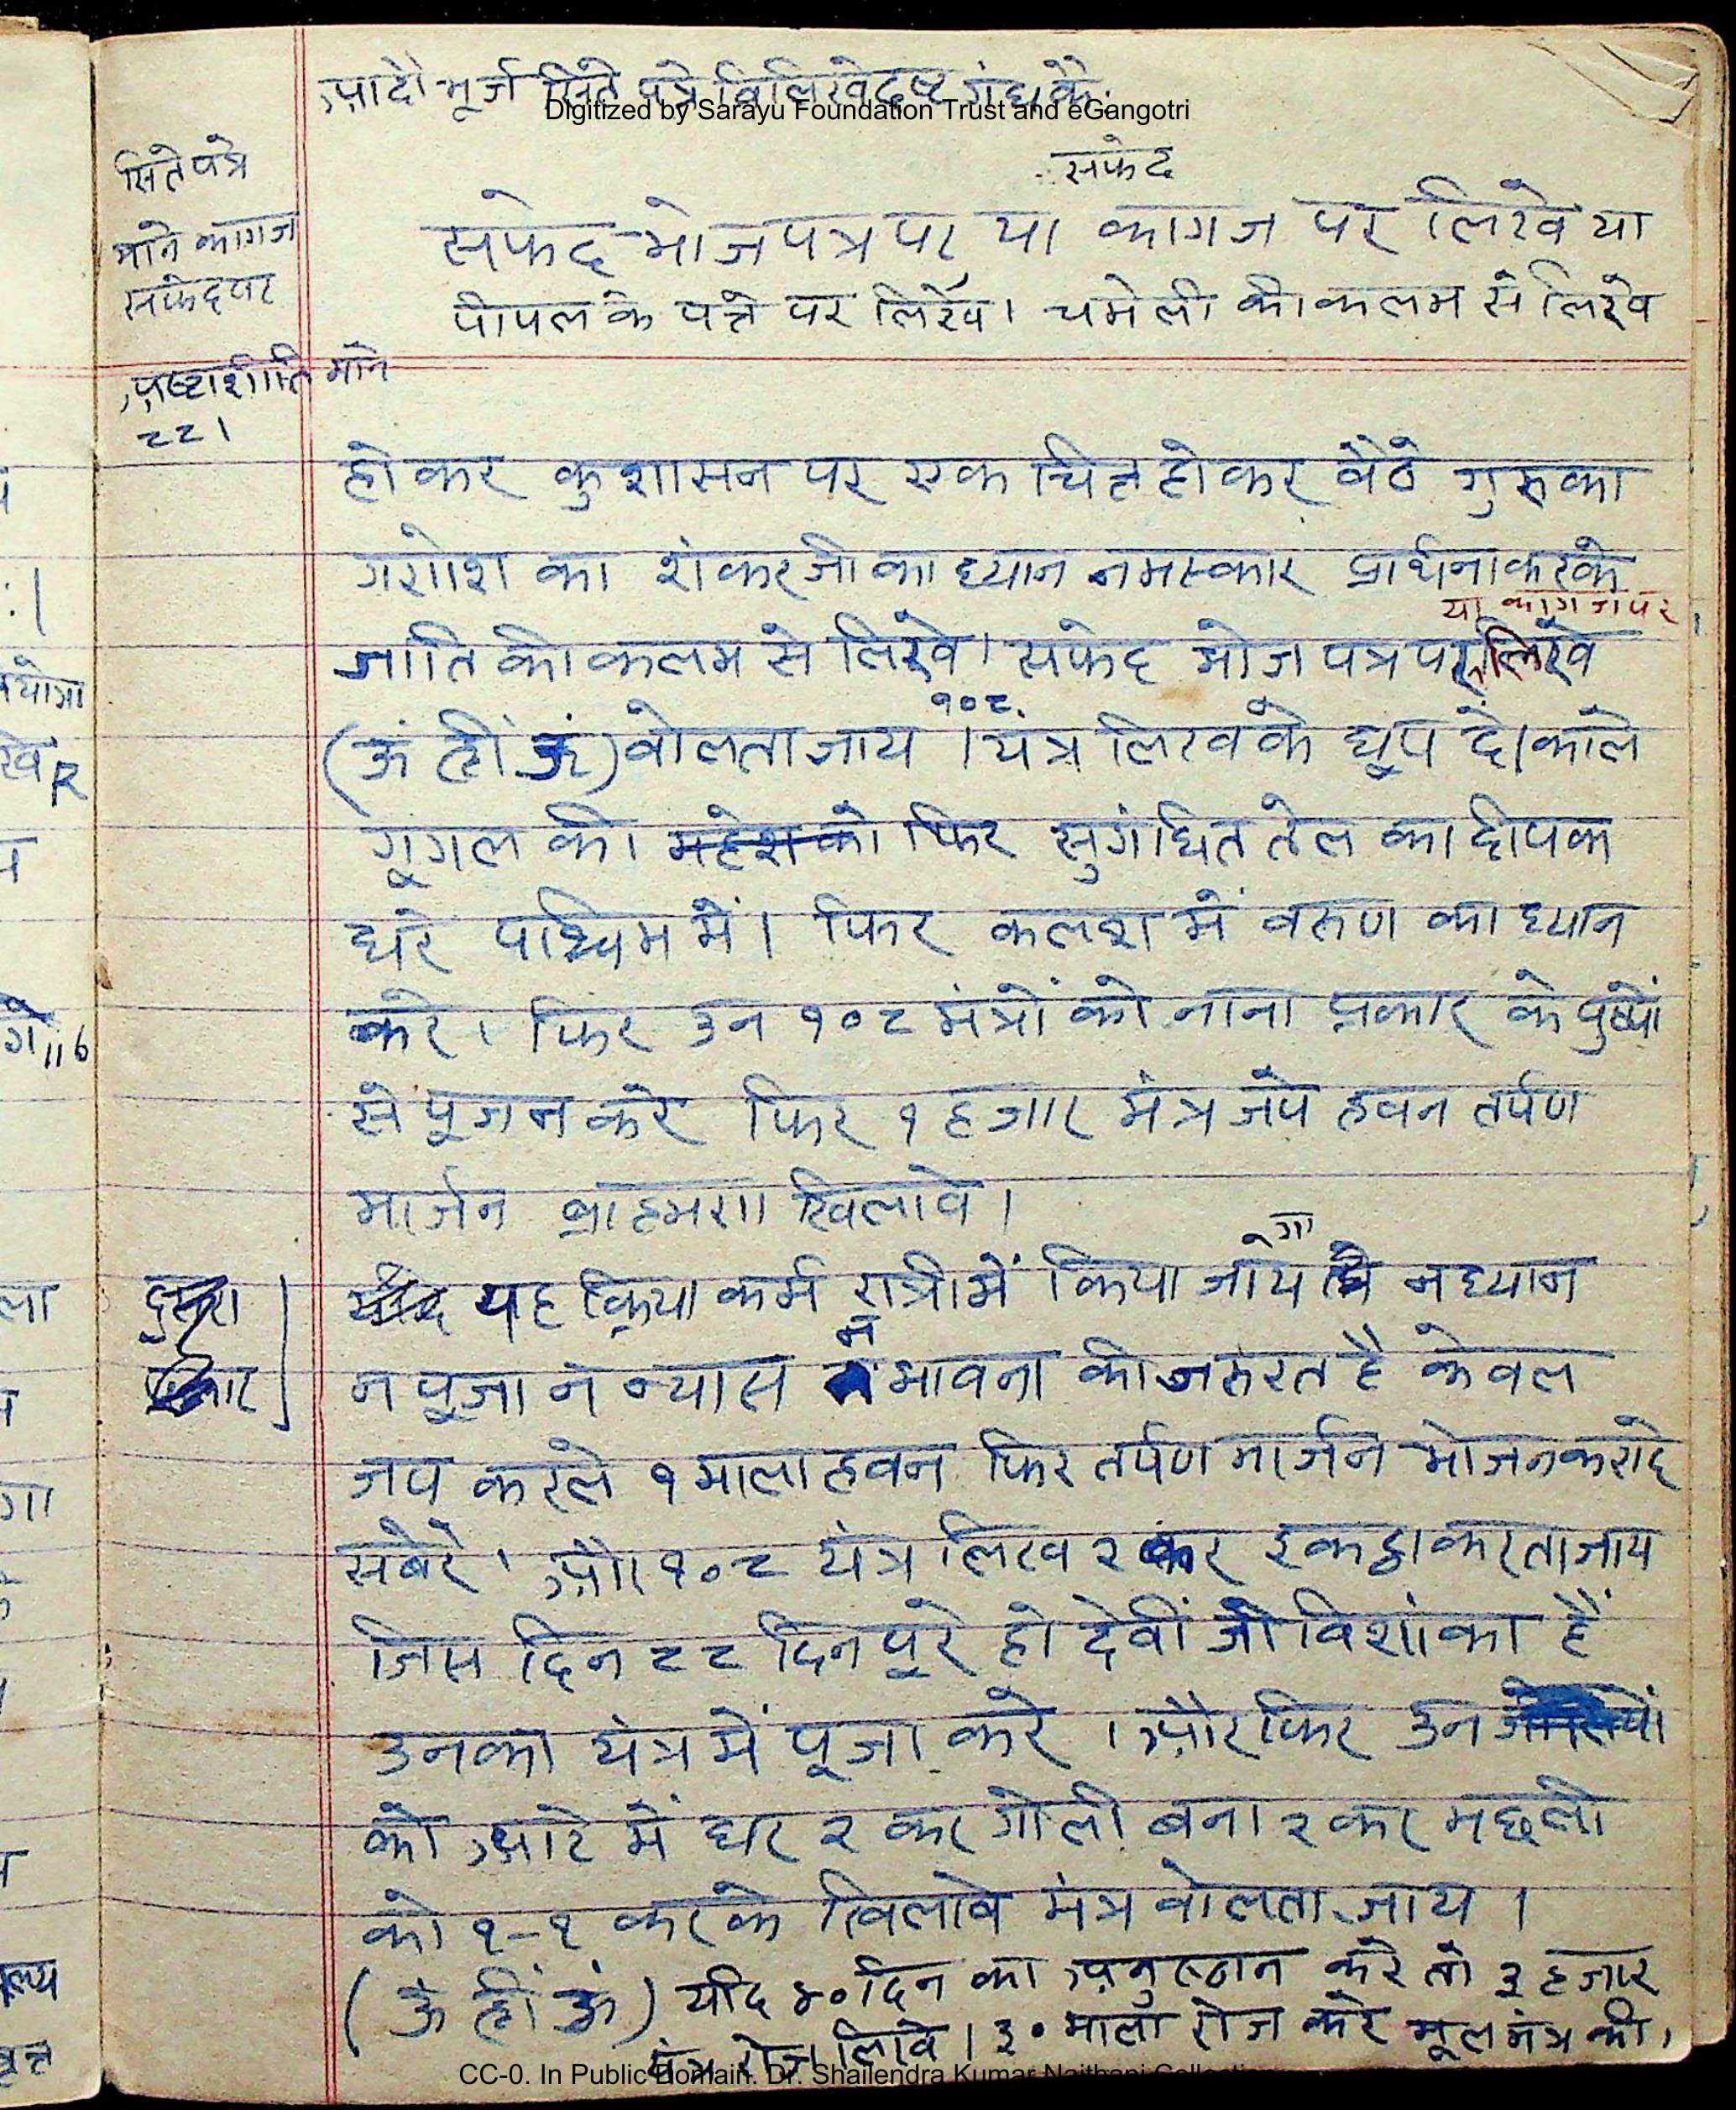 आदौ भूर्ज सिते पत्रे विलिखेदष्ट गंधकैः
Digitized by Sarayu Foundation Trust and eGangotri
सितेपत्रे
माने कागज
सफेदपर
अष्टाशीति माने
८८।
सफेद
सफेद भोजपत्र पर या कागज पर लिखे या
पीपल के पत्ते पर लिखे। चमेली की कलम से लिखे
होकर कुशासन पर एक चित होकर बैठे गुरु का
गणेश का शंकर जी का ध्यान नमस्कार प्रार्थना करके
या कागज पर
जाति की कलम से लिखे। सफेद भोज पत्र पर लिखे
१०८
(ऊं ह्रीं ऊं) बोलता जाय । यंत्र लिख के धूप दे। काले
गूगल की महेश को फिर सुगंधित तेल का दीपक
धरे पश्चिम में। फिर कलश में वरुण का ध्यान
करे। फिर उन १०८ मंत्रों को नाना प्रकार के पुष्पों
से पूजन करे फिर १ हजार मंत्र जपे हवन तर्पण
मार्जन ब्राह्मण खिलावे।
गा
दुसरा
यह क्रिया कर्म रात्री में किया जाय न ध्यान
न
न पूजा न न्यास भावना की जरुरत है केवल
जप करले १ माला हवन फिर तर्पण मार्जन भोजन करादे
सबेरे। और १०८ यंत्र लिख २ कर इकट्ठा करता जाय
जिस दिन ८८ दिन पूरे हो देवीं जी विशांका हैं
उनका यंत्र में पूजा करे । और फिर उन
को आटे में धर २ कर गोली बना २ कर मछली
को १-१ करके खिलावे मंत्र बोलता जाय ।
(ऊं ह्रीं ऊं) यदि ४० दिन का अनुस्ठान करे तो ३ हजार
यंत्र रोज लिखे। ३० माला रोज करे मूल मंत्र की,
CC-0. In Public Domain. Dr. Shailendra Kumar Naithani Collection